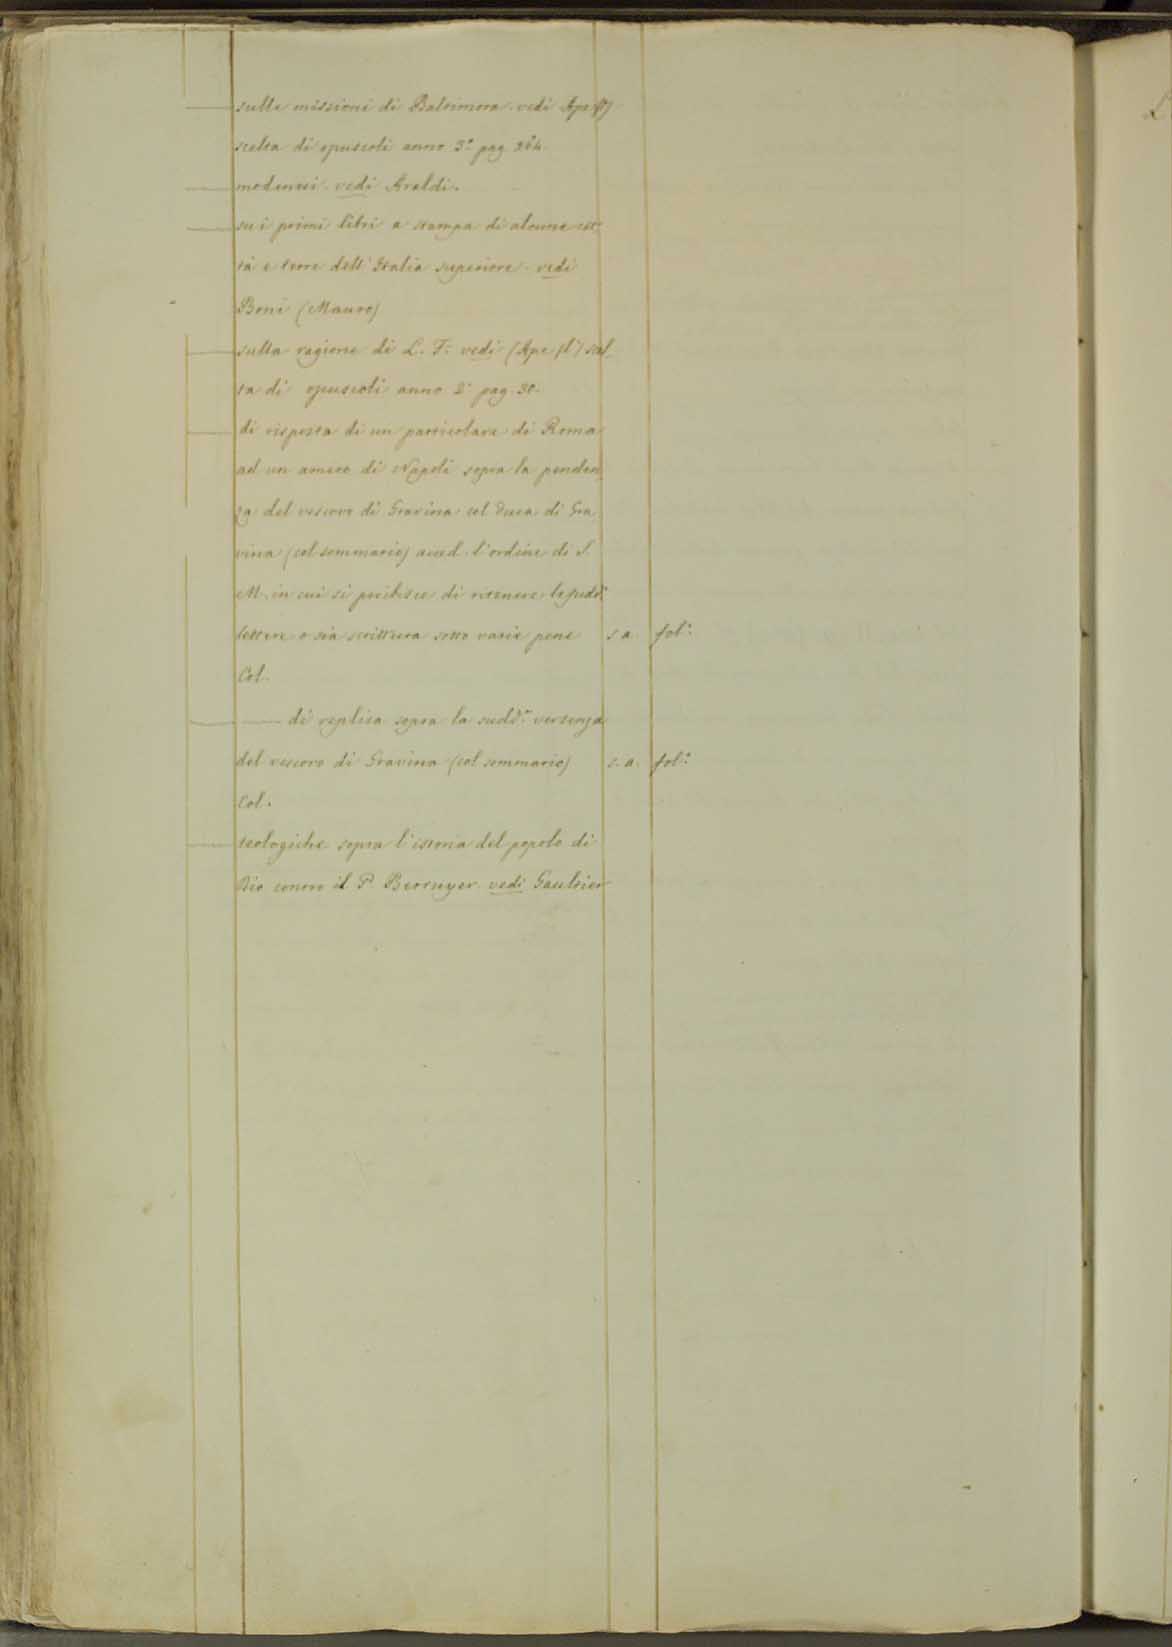 — sulle missioni di Baltimora. vedi Ape (l')
scelta di opuscoli anno 3.° pag. 264.
— modenesi. vedi Araldi.
— su i primi libri a stampa di alcune cit-
tà e terre dell'Italia superiore. vedi
Boni (Mauro)
— sulla ragione di L. F. vedi (Ape (l') scel-
ta di opuscoli anno 2.° pag. 30.
— di risposta di un particolare di Roma
ad un amico di Napoli sopra la penden
za del vescovo di Gravina col Duca di Gra
vina (col sommario) acced. l'ordine di S.
M. in cui si proibisce di ritenere le sudd.e
lettere o sia scrittura sotto varie pene s. a. fol.°
Col.
— — di replica sopra la sudd.a vertenza
del vescovo di Gravina (col sommario) s. a. fol.°
Col.
— teologiche sopra l'istoria del popolo di
Dio contro il P. Berruyer. vedi Gaultier